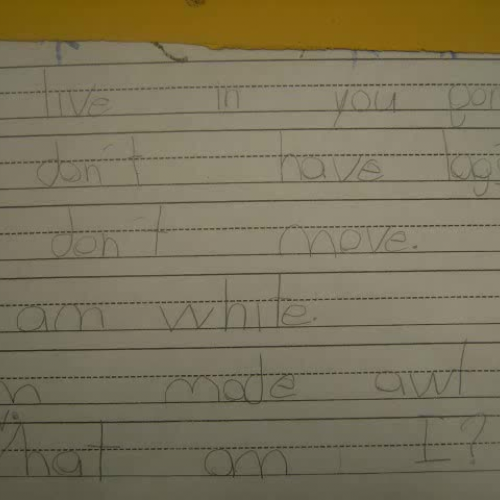 live in you
don't have
don't move.
am white.
made awt
What am I?